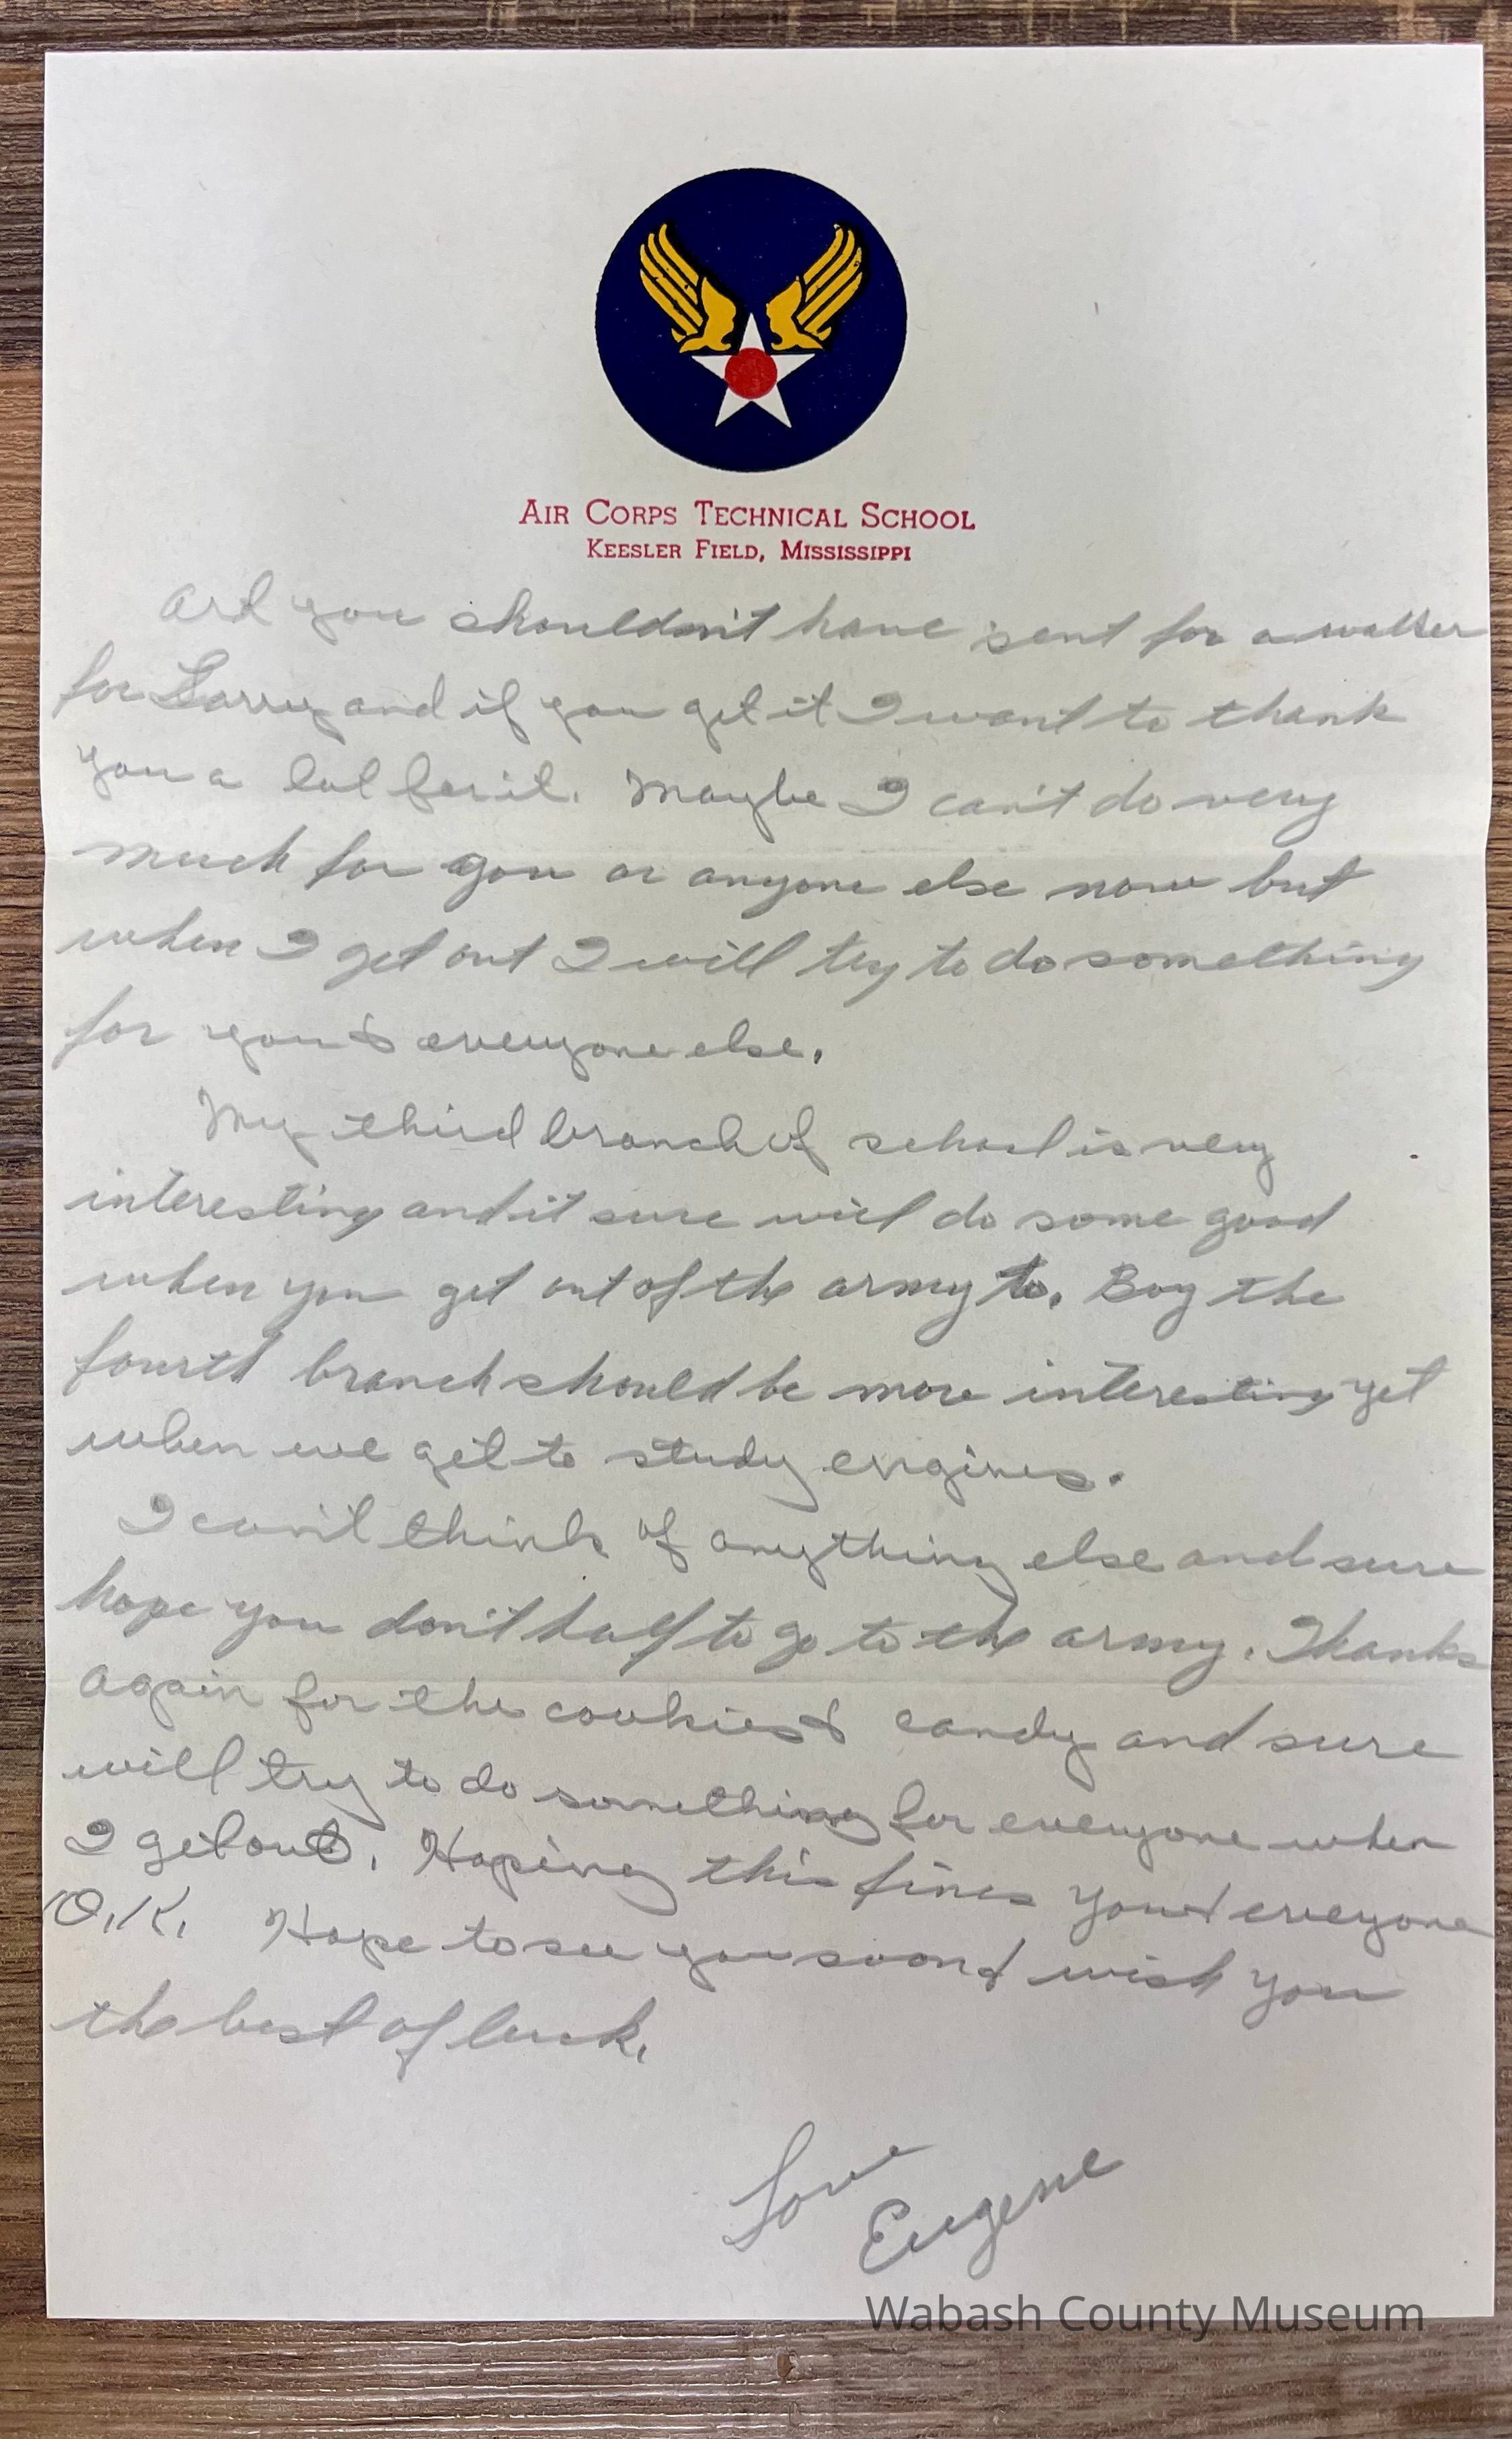 AIR CORPS TECHNICAL SCHOOL
KEESLER FIELD, MISSISSIPPI
you shouldn't have sent for a
for Larry and if you get it I want to thank
you a lot for it. Maybe I can't do very
much for you or anyone else now but
when I get out I will try to do something
for you & everyone else.
My third branch of school is very
interesting and it sure will do some good
when you get out of the army to. Boy the
fourth branch should be more interesting yet
when we get to study engines.
I can't think of anything else and sure
hope you don't half to go to the army. Thanks
again for the cookies & candy and sure
will try to do something for everyone when
I get out. Hoping this fines you & everyone
O.K. Hope to see you soon & wish you
the best of luck.
Love
Eugene
Wabash County Museum